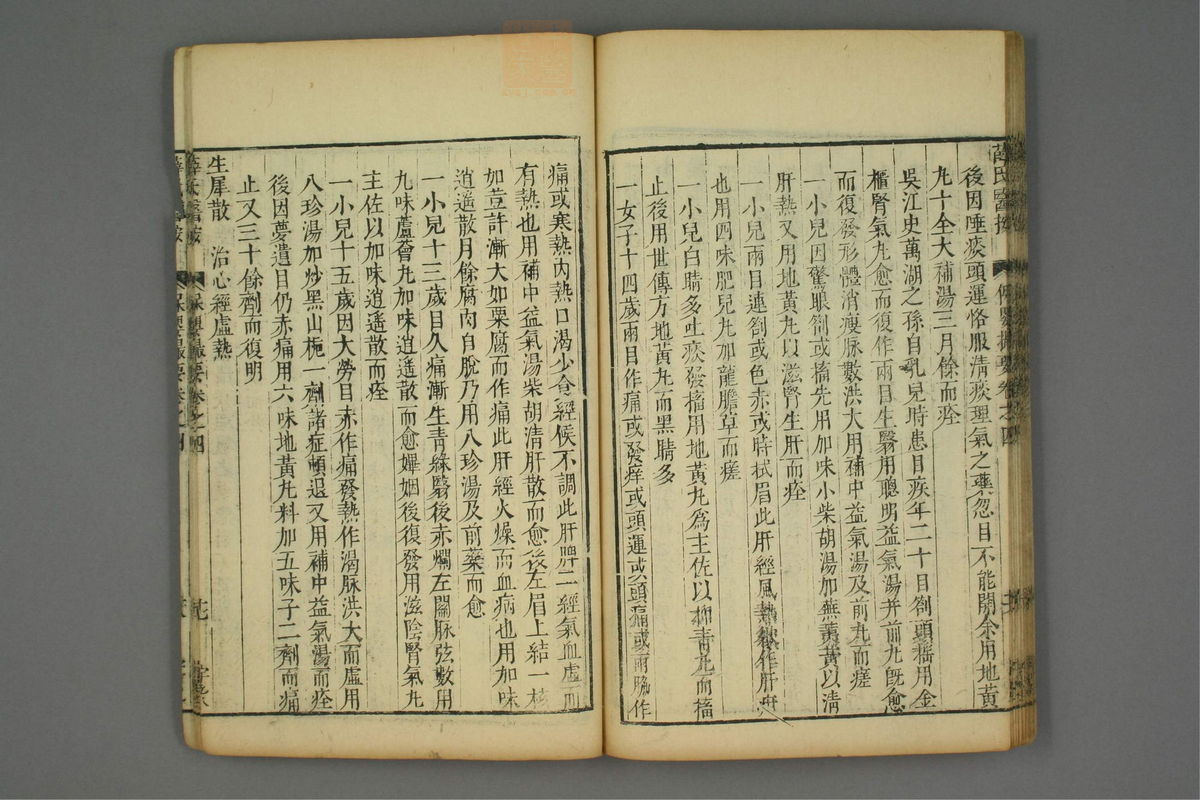 薛氏醫按 保嬰撮要卷之四
後因唾痰頭運恪服清痰理氣之藥忽目不能開余用地黃
九十全大補湯三月餘而痊
吳江史萬湖之孫自乳兒時患目疾年二十目劄頭搐用金
櫃腎氣九愈而復作兩目生翳用聰明益氣湯并前九旣愈
而復發形體消瘦脉數洪大用補中益氣湯及前九而瘥
一小兒因驚眼劄或搐先用加味小柴胡湯加蕪荑黃以清
肝熱又用地黃九以滋腎生肝而痊
一小兒兩目連劄或色赤或時拭眉此肝經風熱欲作肝疳
也用四味肥兒九加龍膽草而瘥
一小兒白睛多吐痰發搐用地黃九爲主佐以抑青九而搐
止後用世傳方地黃九而黑睛多
一女子十四歲兩目作痛或發痒或頭運或頭痛或兩脇作
痛或寒熱內熱口渴少食經候不調此肝脾二經氣血虛而
有熱也用補中益氣湯柴胡清肝散而愈後左眉上結一核
如荳許漸大如栗腐而作痛此肝經火燥而血病也用加味
逍遙散月餘腐肉自脫乃用八珍湯及前藥而愈
一小兒十三歲目久痛漸生青綠翳後赤爛左關脉弦數用
九味蘆薈九加味逍遙散而愈嬋姻後復發用滋陰腎氣九
主佐以加味逍遙散而痊
一小兒十五歲因大勞目赤作痛發熱作渴脉洪大而虛用
八珍湯加炒黑山梔一劑諸症頓退又用補中益氣湯而痊
後因夢遺目仍赤痛用六味地黃九料加五味子二劑而痛
止又三十餘劑而復明
生犀散 治心經虛熱
薛氏醫按 保嬰撮要卷之四